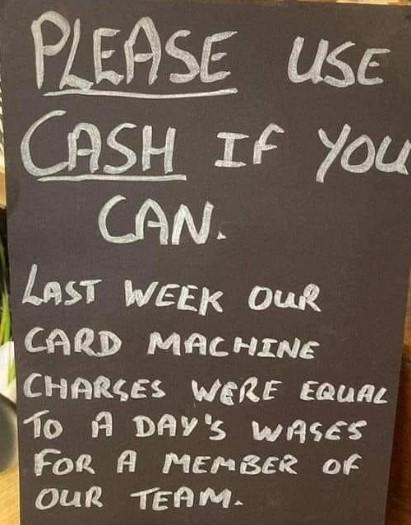 PLEASE USE
CASH IF YOU
CAN.
LAST WEEK OUR
CARD MACHINE
CHARGES WERE EQUAL
TO A DAY'S WAGES
FOR A MEMBER OF
OUR TEAM.